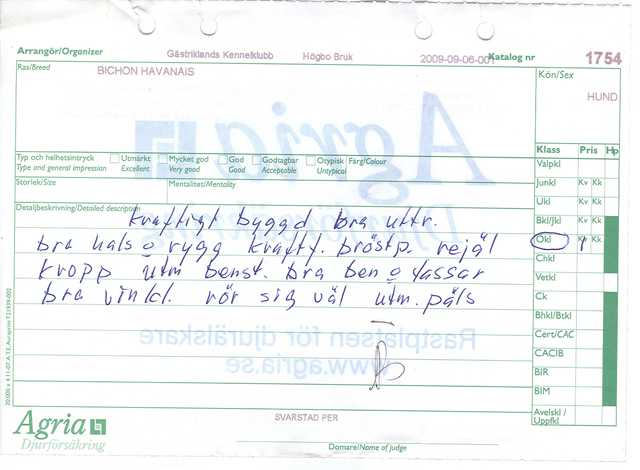 Arrangör/Organizer
Gästriklands Kennelklubb Högbo Bruk 2009-09-06-001 Katalog nr 1754
Ras/Breed BICHON HAVANAIS
Kön/Sex
HUND
Agria
Djurförsäkring
Klass Pris Hp
Typ och helhetsintryck Utmärkt Mycket god God Godtagbar Otypisk Färg/Colour
Type and general impression Excellent Very good Good Acceptable Untypical
Valpkl
Storlek/Size Mentalitet/Mentality
Junkl Kv Kk
Ukl Kv Kk
Detaljbeskrivning/Detailed description
Bkl/Jkl Kv Kk
Ökl Kv Kk
Chkl
Vetkl
Ck
Bhkl/Btkl
Cert/CAC
CACIB
BIR
BIM
Avelskl / Uppfkl
kraftigt byggd bra uttr.
bra hals o rygg kraft. bröstp. rejäl
kropp utm benst. bra ben o tassar
bra vinkl. rör sig väl utm. päls
Rastplatsen för djurälskare
www.agria.se
Agria
Djurförsäkring
SVARSTAD PER
Domare/Name of judge